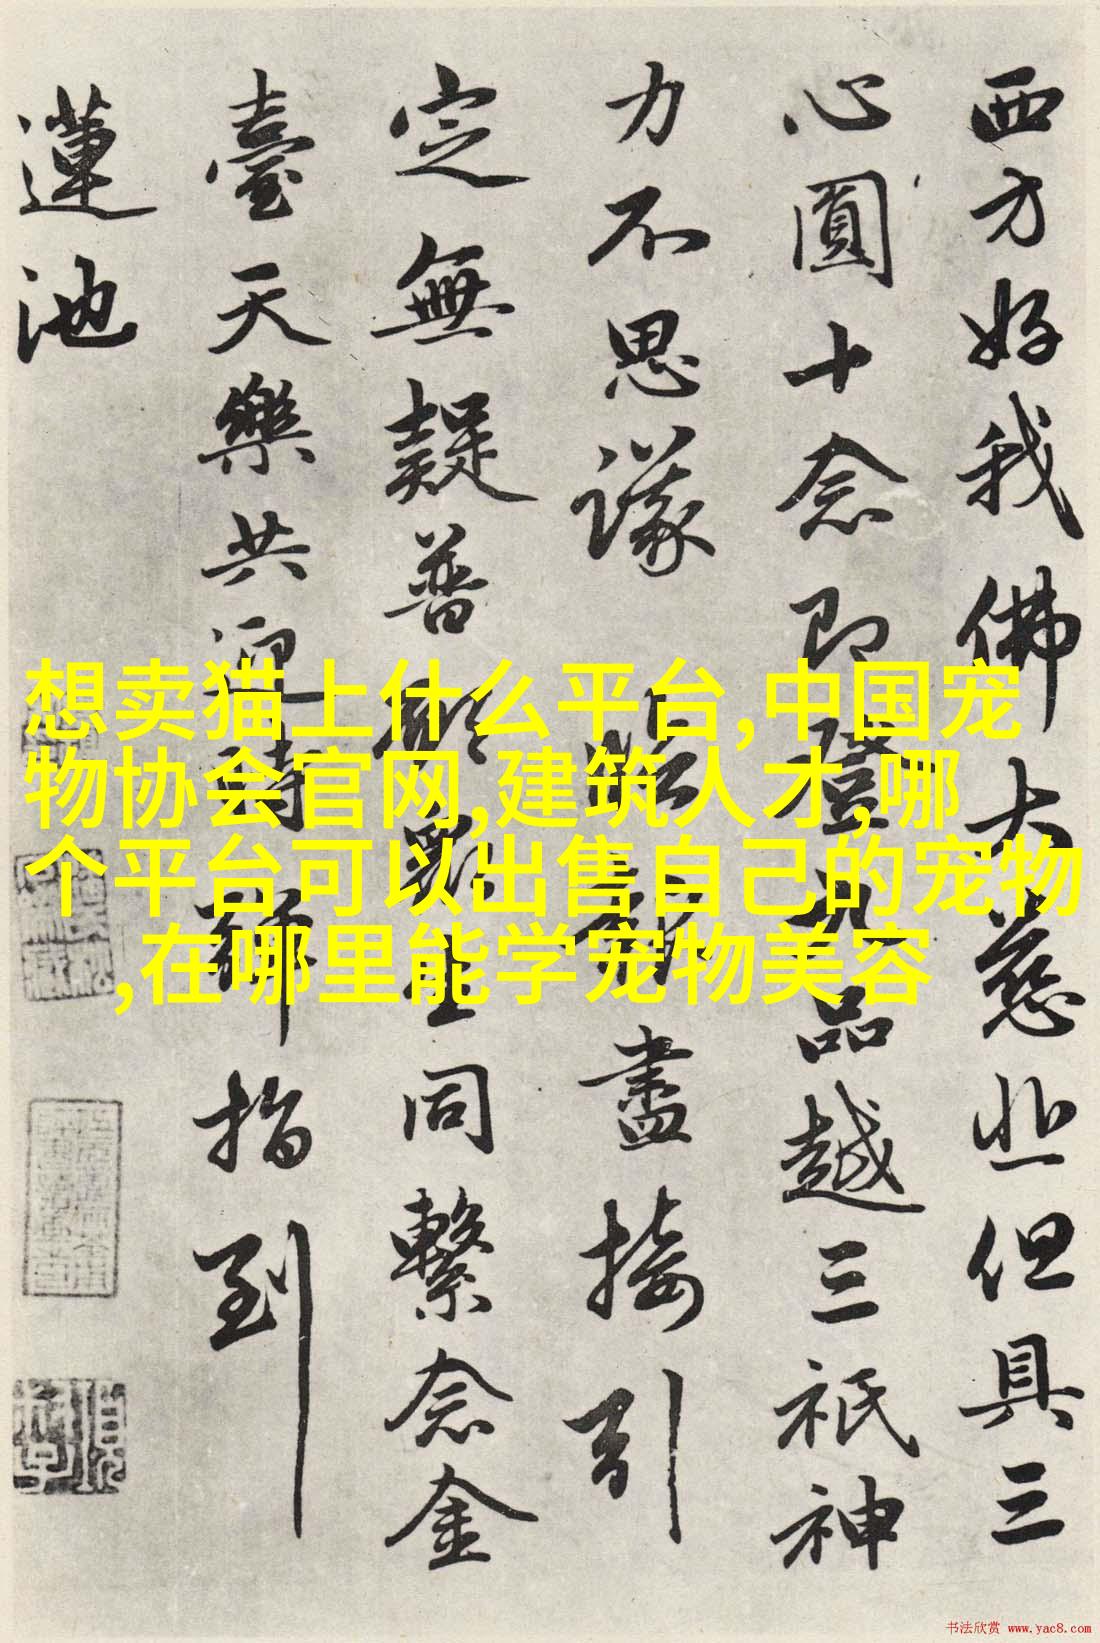 西方好我佛大慈悲但具三
心圓十念即登九品越三祇神
力不思議臨報盡接引
定無疑普願眾生同繫念金
臺天樂共迎時彈指到
蓮池
想卖猫上什么平台,中国宠
物协会官网,建筑人才,哪
个平台可以出售自己的宠物
,在哪里能学宠物美容
书法欣赏 www.yac8.com